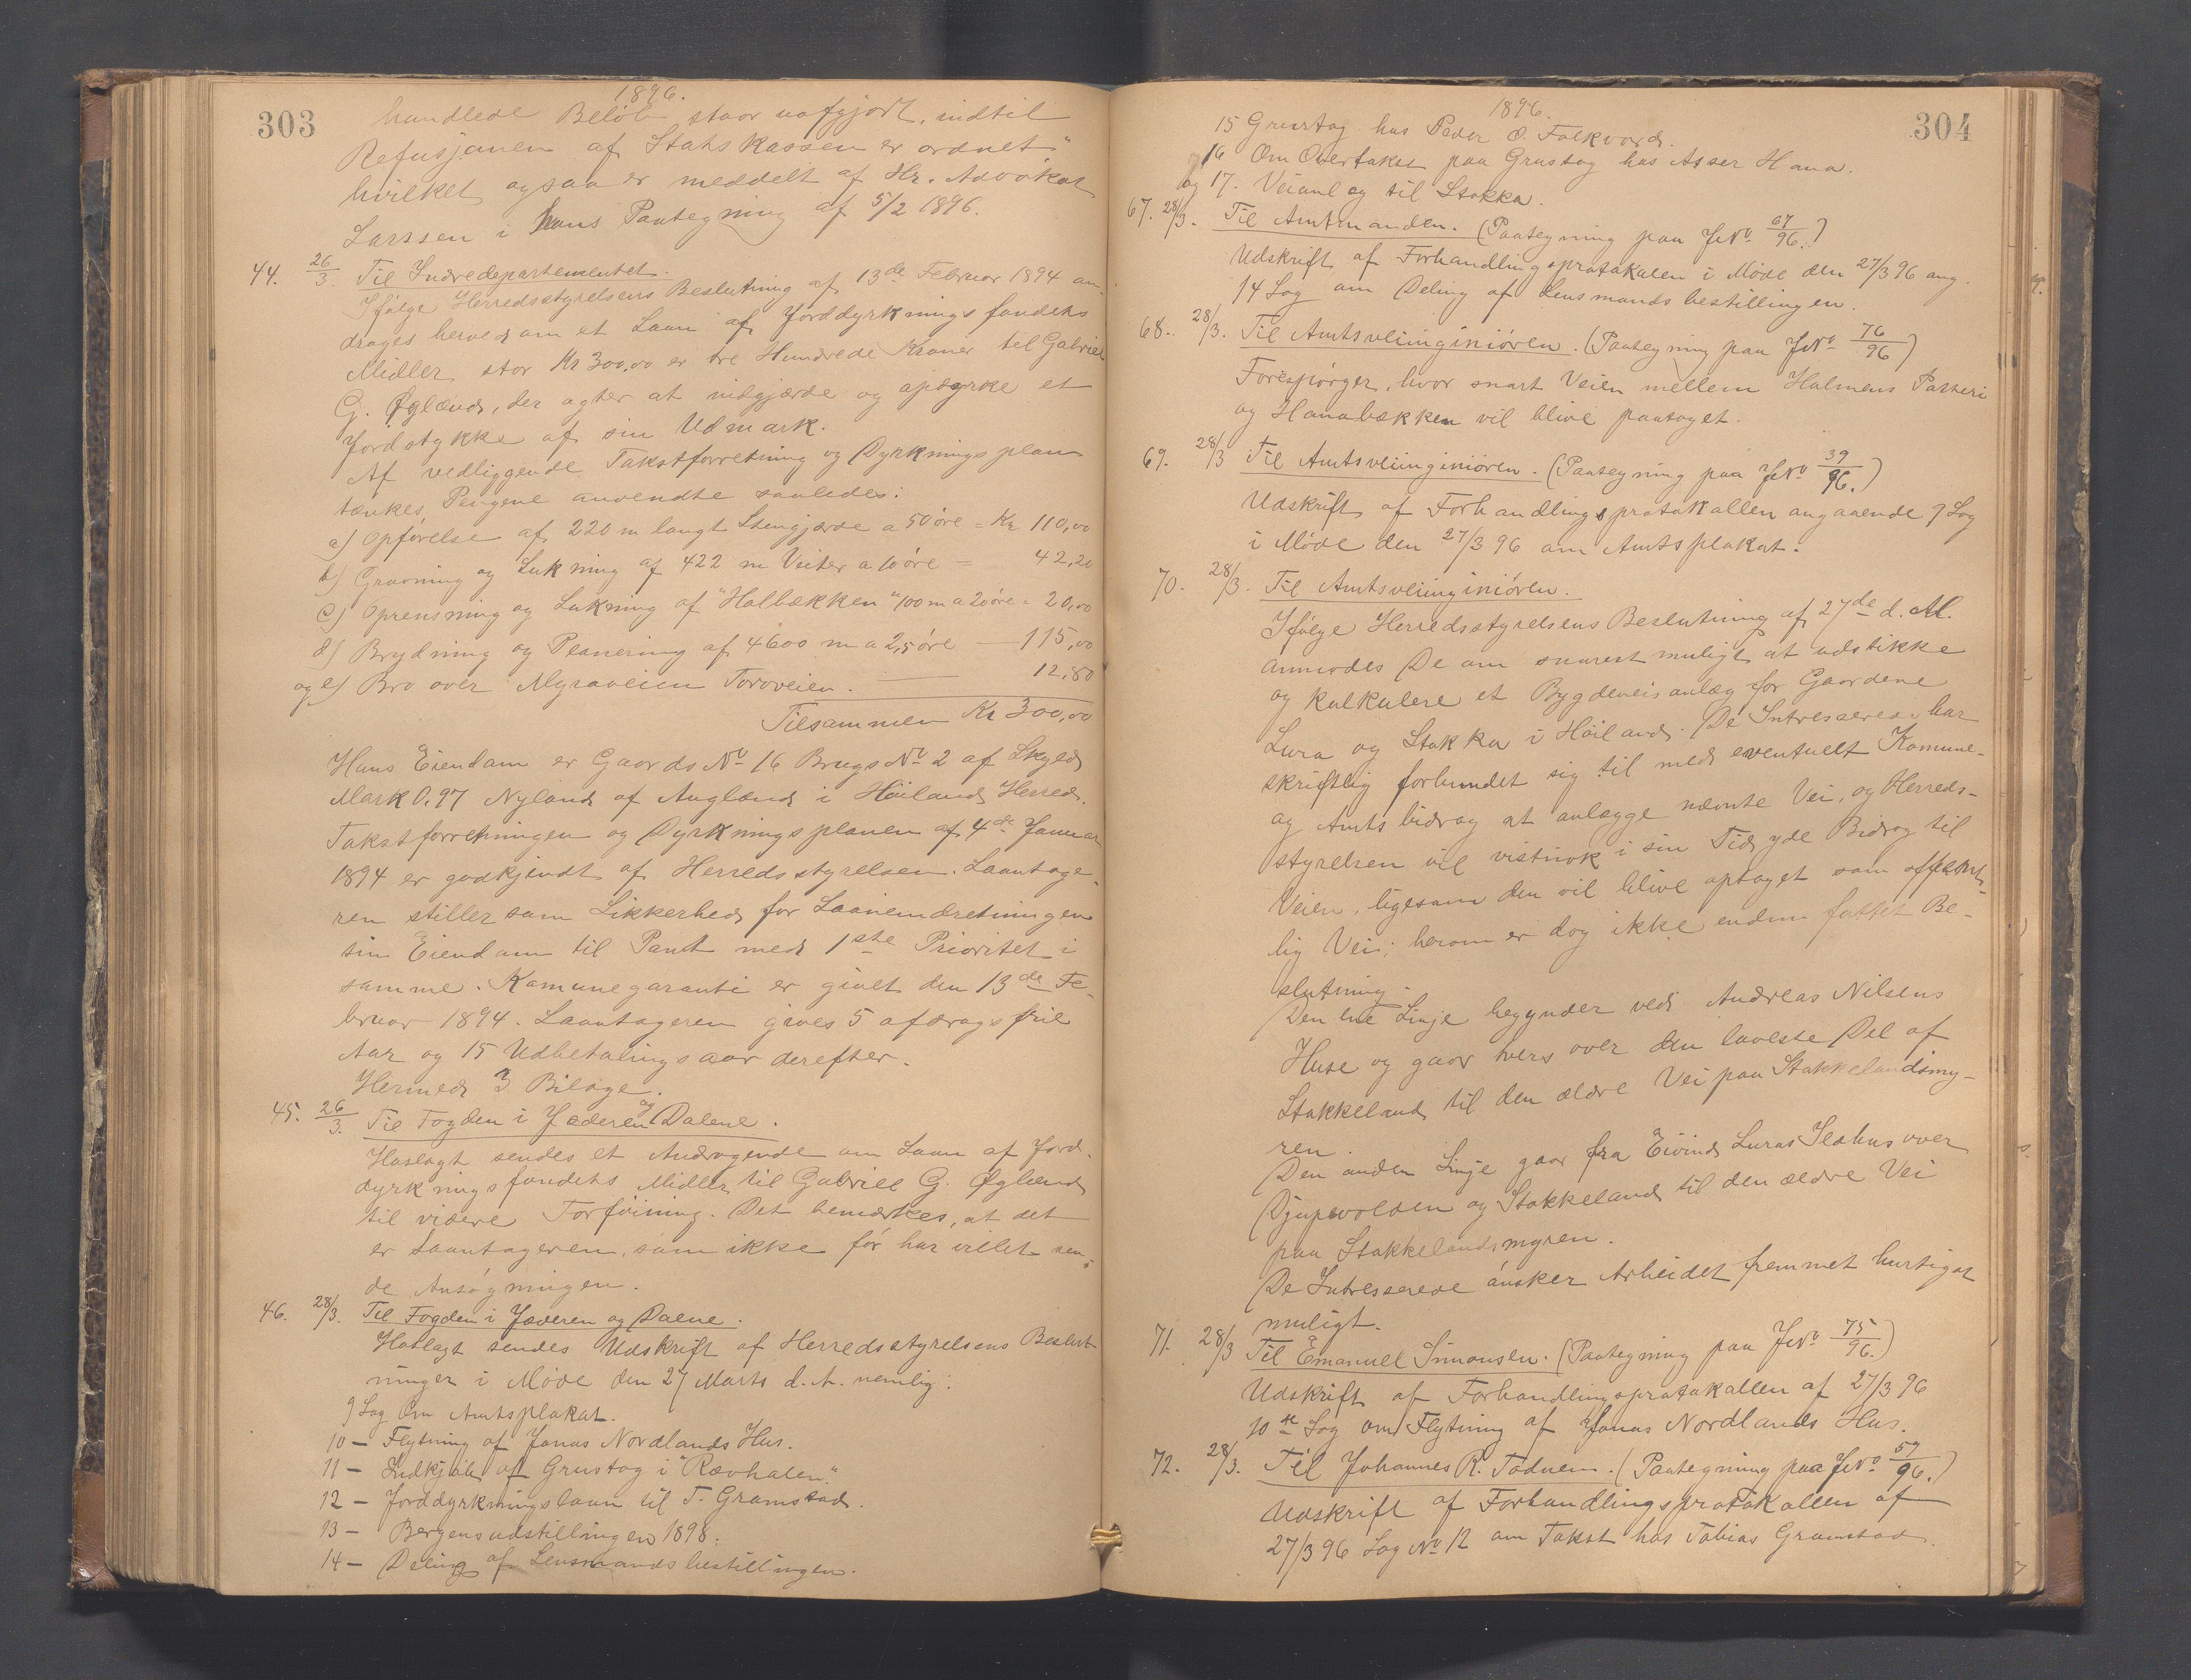 303
1896.
handlede Beløb staar uafgjort, indtil
Refusjonen af Statskassen er ordnet"
hvilket ogsaa er meddelt af Hr. Advokat
Larssen i hans Paategning af 5/2 1896.
44. 26/3. Til Indredepartementet.
Ifølge Herredsstyrelsens Beslutning af 13de Februar 1894 an-
drages herved om et Laan af Jorddyrkningsfondets
Midler stor Kr 300,00 er tre Hundrede Kroner til Gabriel
G. Øglænd, der agter at indgjærde og opdyrke et
Jordstykke af sin Udmark.
Af vedliggende Takstforretning og Dyrkningsplan
tænkes Pengene anvendte saaledes:
a) Opførelse af 220 m langt Stengjærde a 50 øre = Kr 110,00
b) Gravning og Lukning af 422 m Veiter a 10 øre = 42,20
c) Oprensning og Lukning af "Holbækken" 100 m a 20 øre = 20,00
d) Brydning og Planering af 4600 m a 2,5 øre — 115,00
og e) Bro over Myraveien Toroveien. — 12,80
Tilsammen Kr 300,00
Hans Eiendom er Gaards No 16 Brugs No 2 af Skyld
Mark 0,97 Nyland af Auglænd i Høilands Herred.
Takstforretningen og Dyrkningsplanen af 4de Januar
1894 er godkjendt af Herredsstyrelsen. Laantage-
ren stiller som Sikkerhed for Laaneindretningen
sin Eiendom til Pant med 1ste Prioritet i
samme. Komunegaranti er givet den 13de Fe-
bruar 1894. Laantageren gives 5 afdragsfrie
Aar og 15 Udbetalingsaar derefter.
Hermed 3 Bilage.
45. 26/3. Til Fogden i Jæderen og Dalene.
Hoslagt sendes et Andragende om Laan af Jord-
dyrkningsfondets Midler til Gabriel G. Øglænd
til videre Forføining. Det bemærkes, at det
er Laantageren, som ikke før har villet sen-
de Ansøgningen.
46. 28/3. Til Fogden i Jæderen og Dalene.
Hoslagt sendes Udskrift af Herredsstyrelsens Beslut-
ninger i Møde den 27 Marts d. A. nemlig:
9 Sag Om Amtsplakat.
10 — Flytning af Jonas Nordlands Hus.
11 — Indkjøb af Grustag i "Rævhalen".
12 — Jorddyrkningslaan til T. Gramstad.
13 — Bergensudstillingen 1898.
14 — Deling af Lensmandsbestillingen.
304
1896.
15 Grustag hos Peder O. Folkvord.
16 Om Overtakst paa Grustag hos Asser Hana.
og 17. Veianlæg til Stokka.
67. 28/3. Til Amtmanden. (Paategning paa JNo 67/96.)
Udskrift af Forhandlingsprotokolen i Møde den 27/3 96 ang.
14 Sag om Deling af Lensmandsbestillingen.
68. 28/3. Til Amtsveiinginiøren. (Paategning paa JNo 76/96)
Forespørger, hvor snart Veien mellem Holmens Parti
og Hanabækken vil blive paataget.
69. 28/3 Til Amtsveiinginiøren. (Paategning paa JNo 39/96.)
Udskrift af Forhandlingsprotokollen angaaende 9 Sag
i Møde den 27/3 96 om Amtsplakat.
70. 28/3. Til Amtsveiinginiøren.
Ifølge Herredsstyrelsens Beslutning af 27de d. M.
anmodes De om snarest muligt at udstikke
og kalkulere et Bygdeveisanlæg for Gaardene
Lura og Stokka i Høiland. De Intresserede har
skriftlig forbundet sig til med eventuelt Komune-
og Amtsbidrag at anlægge nævnte Vei, og Herreds-
styrelsen vil vistnok i sin Tid yde Bidrag til
Veien, ligesom den vil blive optaget som offent-
lig Vei; herom er dog ikke endnu fattet Be-
slutning.
Den ene Linje begynder ved Andreas Nilsens
Huse og gaar tvers over den laveste Del af
Stokkeland til den ældre Vei paa Stokkelandsmy-
ren.
Den anden Linje gaar fra Eivind Luras Ildhus over
Djupevolden og Stokkeland til den ældre Vei
paa Stokkelandsmyren.
De Intresserede ønsker Arbeidet fremmet hurtigst
muligt.
71. 28/3 Til Emanuel Simonsen. (Paategning paa JNo 75/96.)
Udskrift af Forhandlingsprotokollen af 27/3 96
10de Sag om Flytning af Jonas Nordlands Hus.
72. 28/3. Til Johannes R. Todnem. (Paategning paa JNo 57/96.)
Udskrift af Forhandlingsprotokollen af
27/3 96 Sag No 12 om Takst hos Tobias Gramstad.